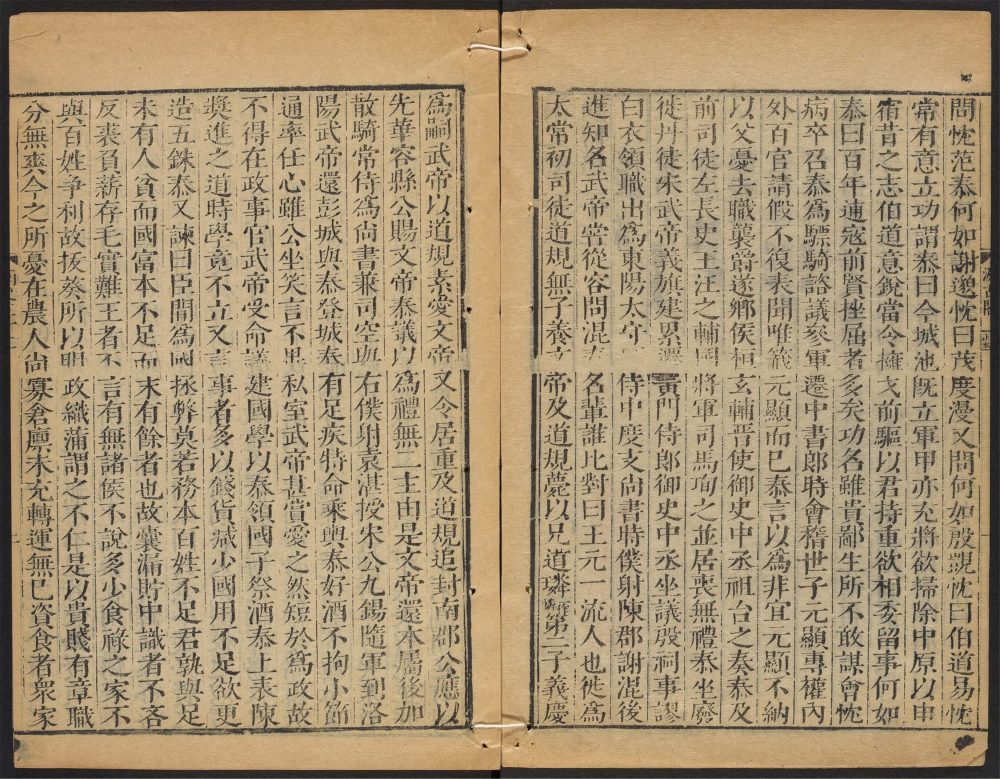 問忱范泰何如謝邈忱曰茂度漫又問何如殷覬忱曰伯道易忱
常有意立功謂泰曰今城池既立軍甲亦充將欲掃除中原以申
宿昔之志伯道意銳當令擁戈前驅以君持重欲相委留事何如
泰曰百年逋寇前賢挫屈者多矣功名雖貴鄙生所不敢謀會忱
病卒召泰爲驃騎諮議參軍遷中書郎時會稽世子元顯專權內
外百官請假不復表聞唯籤元顯而已泰言以爲非宜元顯不納
以父憂去職襲爵遂鄉侯桓玄輔晉使御史中丞祖台之奏泰及
前司徒左長史王汪之輔國將軍司馬珣之並居喪無禮泰坐廢
徙丹徒宋武帝義旗建累遷黃門侍郎御史中丞坐議殷祠事謬
白衣領職出爲東陽太守侍中度支尚書時僕射陳郡謝混後
進知名武帝嘗從容問混泰名輩誰比對曰王元一流人也徙爲
太常初司徒道規無子養文帝及道規薨以兄道璘第二子義慶
爲嗣武帝以道規素愛文帝又令居重及道規追封南郡公應以
先華容縣公賜文帝泰議以爲禮無二主由是文帝還本屬後加
散騎常侍爲尚書兼司空與右僕射袁湛授宋公九錫隨軍到洛
陽武帝還彭城與泰登城泰有足疾特命乘輿泰好酒不拘小節
通率任心雖公坐笑言不異私室武帝甚賞愛之然短於爲政故
不得在政事官武帝受命議建國學以泰領國子祭酒泰上表陳
獎進之道時學竟不立又言事者多以錢貨減少國用不足欲更
造五銖泰又諫曰臣聞爲國拯弊莫若務本百姓不足君孰與足
未有人貧而國富本不足而末有餘者也故囊漏貯中識者不吝
反裘負薪存毛實難王者不言有無諸侯不說多少食祿之家不
與百姓爭利故拔葵所以明政織蒲謂之不仁是以貴賤有章職
分無爽今之所憂在農人尚寡倉廩未充轉運無已資食者衆家